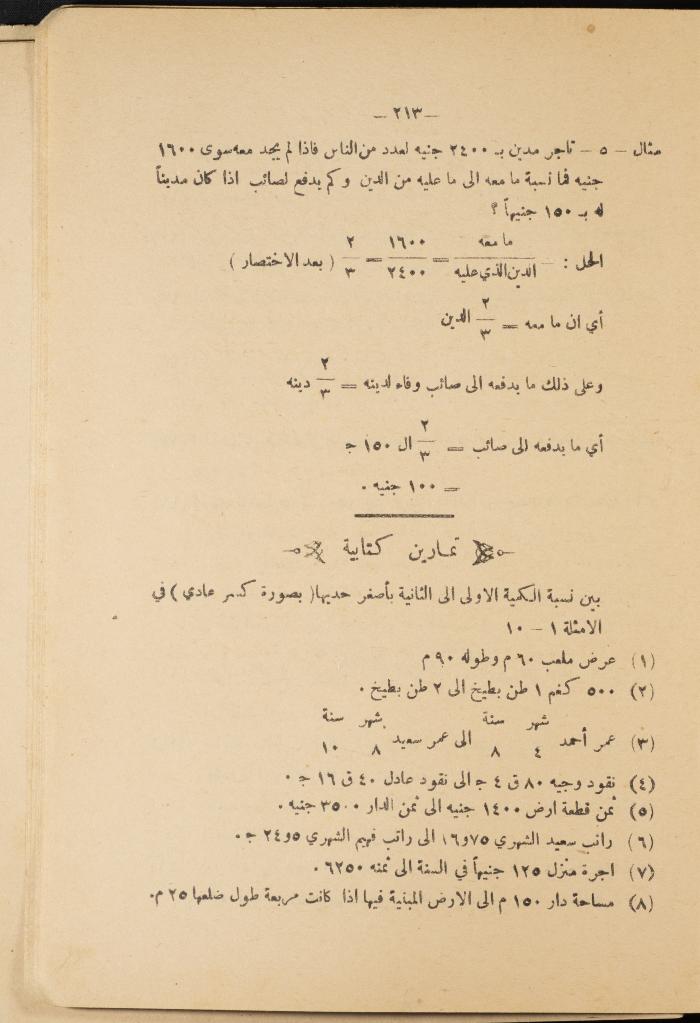 — ٢١٣ —
مثال — ٥ — تاجر مدين بـ ٢٤٠٠ جنيه لعدد من الناس فاذا لم يجد معه سوى ١٦٠٠
جنيه فما نسبة ما معه الى ما عليه من الدين وكم يدفع لصائب اذا كان مديناً
له بـ ١٥٠ جنيهاً ؟
الحل : — ما معه / الدين الذي عليه = ١٦٠٠ / ٢٤٠٠ = ٢ / ٣ ( بعد الاختصار )
أي ان ما معه = ٢ / ٣ الدين
وعلى ذلك ما يدفعه الى صائب وفاء لدينه = ٢ / ٣ دينه
أي ما يدفعه الى صائب = ٢ / ٣ ال ١٥٠ ج
= ١٠٠ جنيه .
تمارين كتابية
بين نسبة الكمية الاولى الى الثانية بأصغر حديها ( بصورة كسر عادي ) في
الامثلة ١ — ١٠
(١) عرض ملعب ٦٠ م وطوله ٩٠ م
(٢) ٥٠٠ كغم ١ طن بطيخ الى ٢ طن بطيخ .
شهر سنة شهر سنة
(٣) عمر أحمد ٤ ٨ الى عمر سعيد ٨ ١٠
(٤) نقود وجيه ٨٠ ق ٤ ج الى نقود عادل ٤٠ ق ١٦ ج .
(٥) ثمن قطعة ارض ١٤٠٠ جنيه الى ثمن الدار ٣٥٠٠ جنيه .
(٦) راتب سعيد الشهري ٧٥و١٦ الى راتب فهيم الشهري ٥و٢٤ ج .
(٧) اجرة منزل ١٢٥ جنيهاً في السنة الى ثمنه ٦٢٥٠ .
(٨) مساحة دار ١٥٠ م الى الارض المبنية فيها اذا كانت مربعة طول ضلعها ٢٥ م.